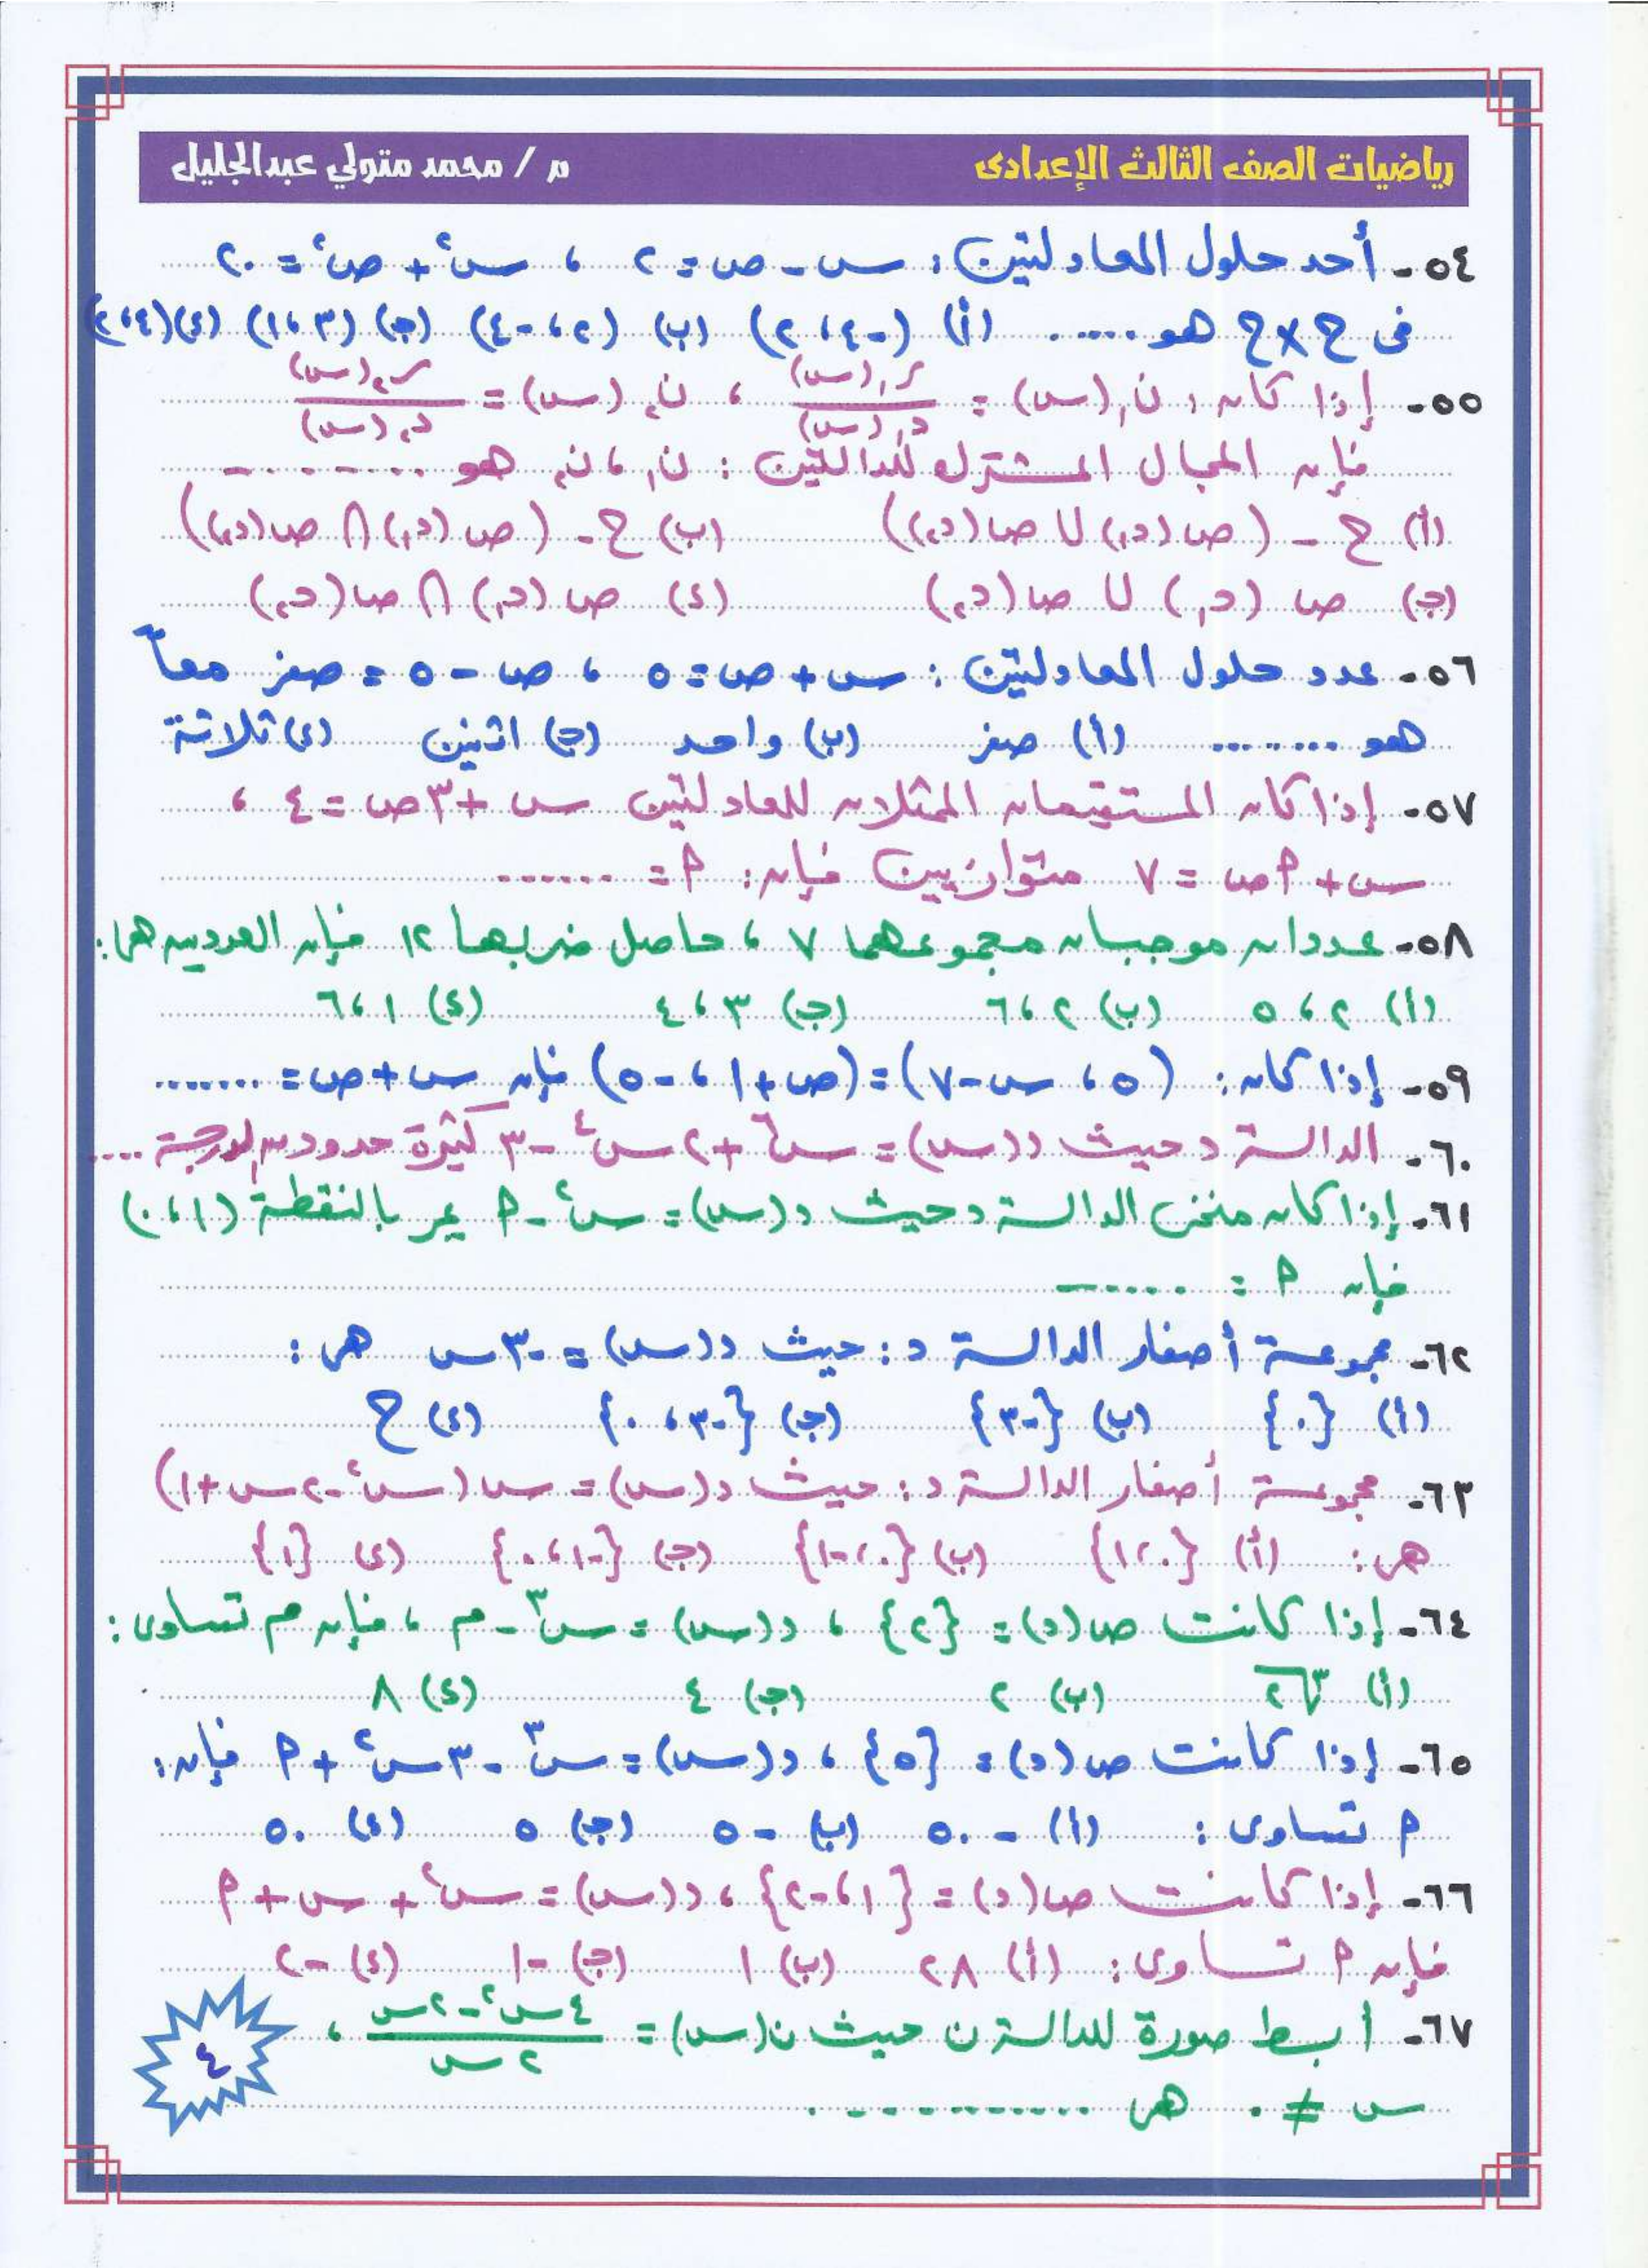 رياضيات الصف الثالث الإعدادى
م / محمد متولي عبدالجليل
٥٤- أحد حلول المعادلتين: س - ص = ٢ ، س٢ + ص٢ = ٢٠
فى ح × ح هو ..... (أ) (-٤ ، ٢) (ب) (٢ ، -٤) (جـ) (٣ ، ١) (د) (٤ ، ٢)
٥٥- إذا كان: ن١(س) = ر١(س) / د١(س) ، ن٢(س) = ر٢(س) / د٢(س)
فإن المجال المشترك للدالتين: ن١ ، ن٢ هو ........
(أ) ح - (ص(د١) ∪ ص(د٢)) (ب) ح - (ص(د١) ∩ ص(د٢))
(جـ) ص(د١) ∪ ص(د٢) (د) ص(د١) ∩ ص(د٢)
٥٦- عدد حلول المعادلتين: س + ص = ٥ ، ص - ٥ = صفر معاً
هو ........ (أ) صفر (ب) واحد (جـ) اثنين (د) ثلاثة
٥٧- إذا كان المستقيمان الممثلان للمعادلتين س + ٣ص = ٤ ،
س + ٢ص = ٧ متوازيين فإن: ٢ = ......
٥٨- عددان موجبان مجموعهما ٧ ، حاصل ضربهما ١٢ فإن العددين هما:
(أ) ٢ ، ٥ (ب) ٢ ، ٦ (جـ) ٣ ، ٤ (د) ١ ، ٦
٥٩- إذا كان: (٥ ، س - ٧) = (ص + ١ ، -٥) فإن س + ص = .......
٦٠- الدالة د حيث د(س) = س٦ + ٢س٤ - ٣ كثيرة حدود من الدرجة ....
٦١- إذا كان منحنى الدالة د حيث د(س) = س٢ - م يمر بالنقطة (١ ، ٠)
فإن م = ......
٦٢- مجموعة أصفار الدالة د: حيث د(س) = -٣س هى:
(أ) {٠} (ب) {-٣} (جـ) {-٣ ، ٠} (د) ح
٦٣- مجموعة أصفار الدالة د: حيث د(س) = س(س٢ - ٢س + ١)
هى: (أ) {٠ ، ١} (ب) {٠ ، -١} (جـ) {-١ ، ٠} (د) {١}
٦٤- إذا كانت ص(د) = {٢} ، د(س) = س٣ - م ، فإن م تساوى:
(أ) ٣√٢ (ب) ٢ (جـ) ٤ (د) ٨
٦٥- إذا كانت ص(د) = {٥} ، د(س) = س٣ - ٣س٢ + م فإن:
م تساوى: (أ) -٥٠ (ب) -٥ (جـ) ٥ (د) ٥٠
٦٦- إذا كانت ص(د) = {١ ، -٢} ، د(س) = س٢ + س + م
فإن م تساوى: (أ) ٢٨ (ب) ١ (جـ) -١ (د) -٢
٦٧- أبسط صورة للدالة ن حيث ن(س) = ٤س٢ - ٢س / ٢س ،
س ≠ ٠ هى ............
٤